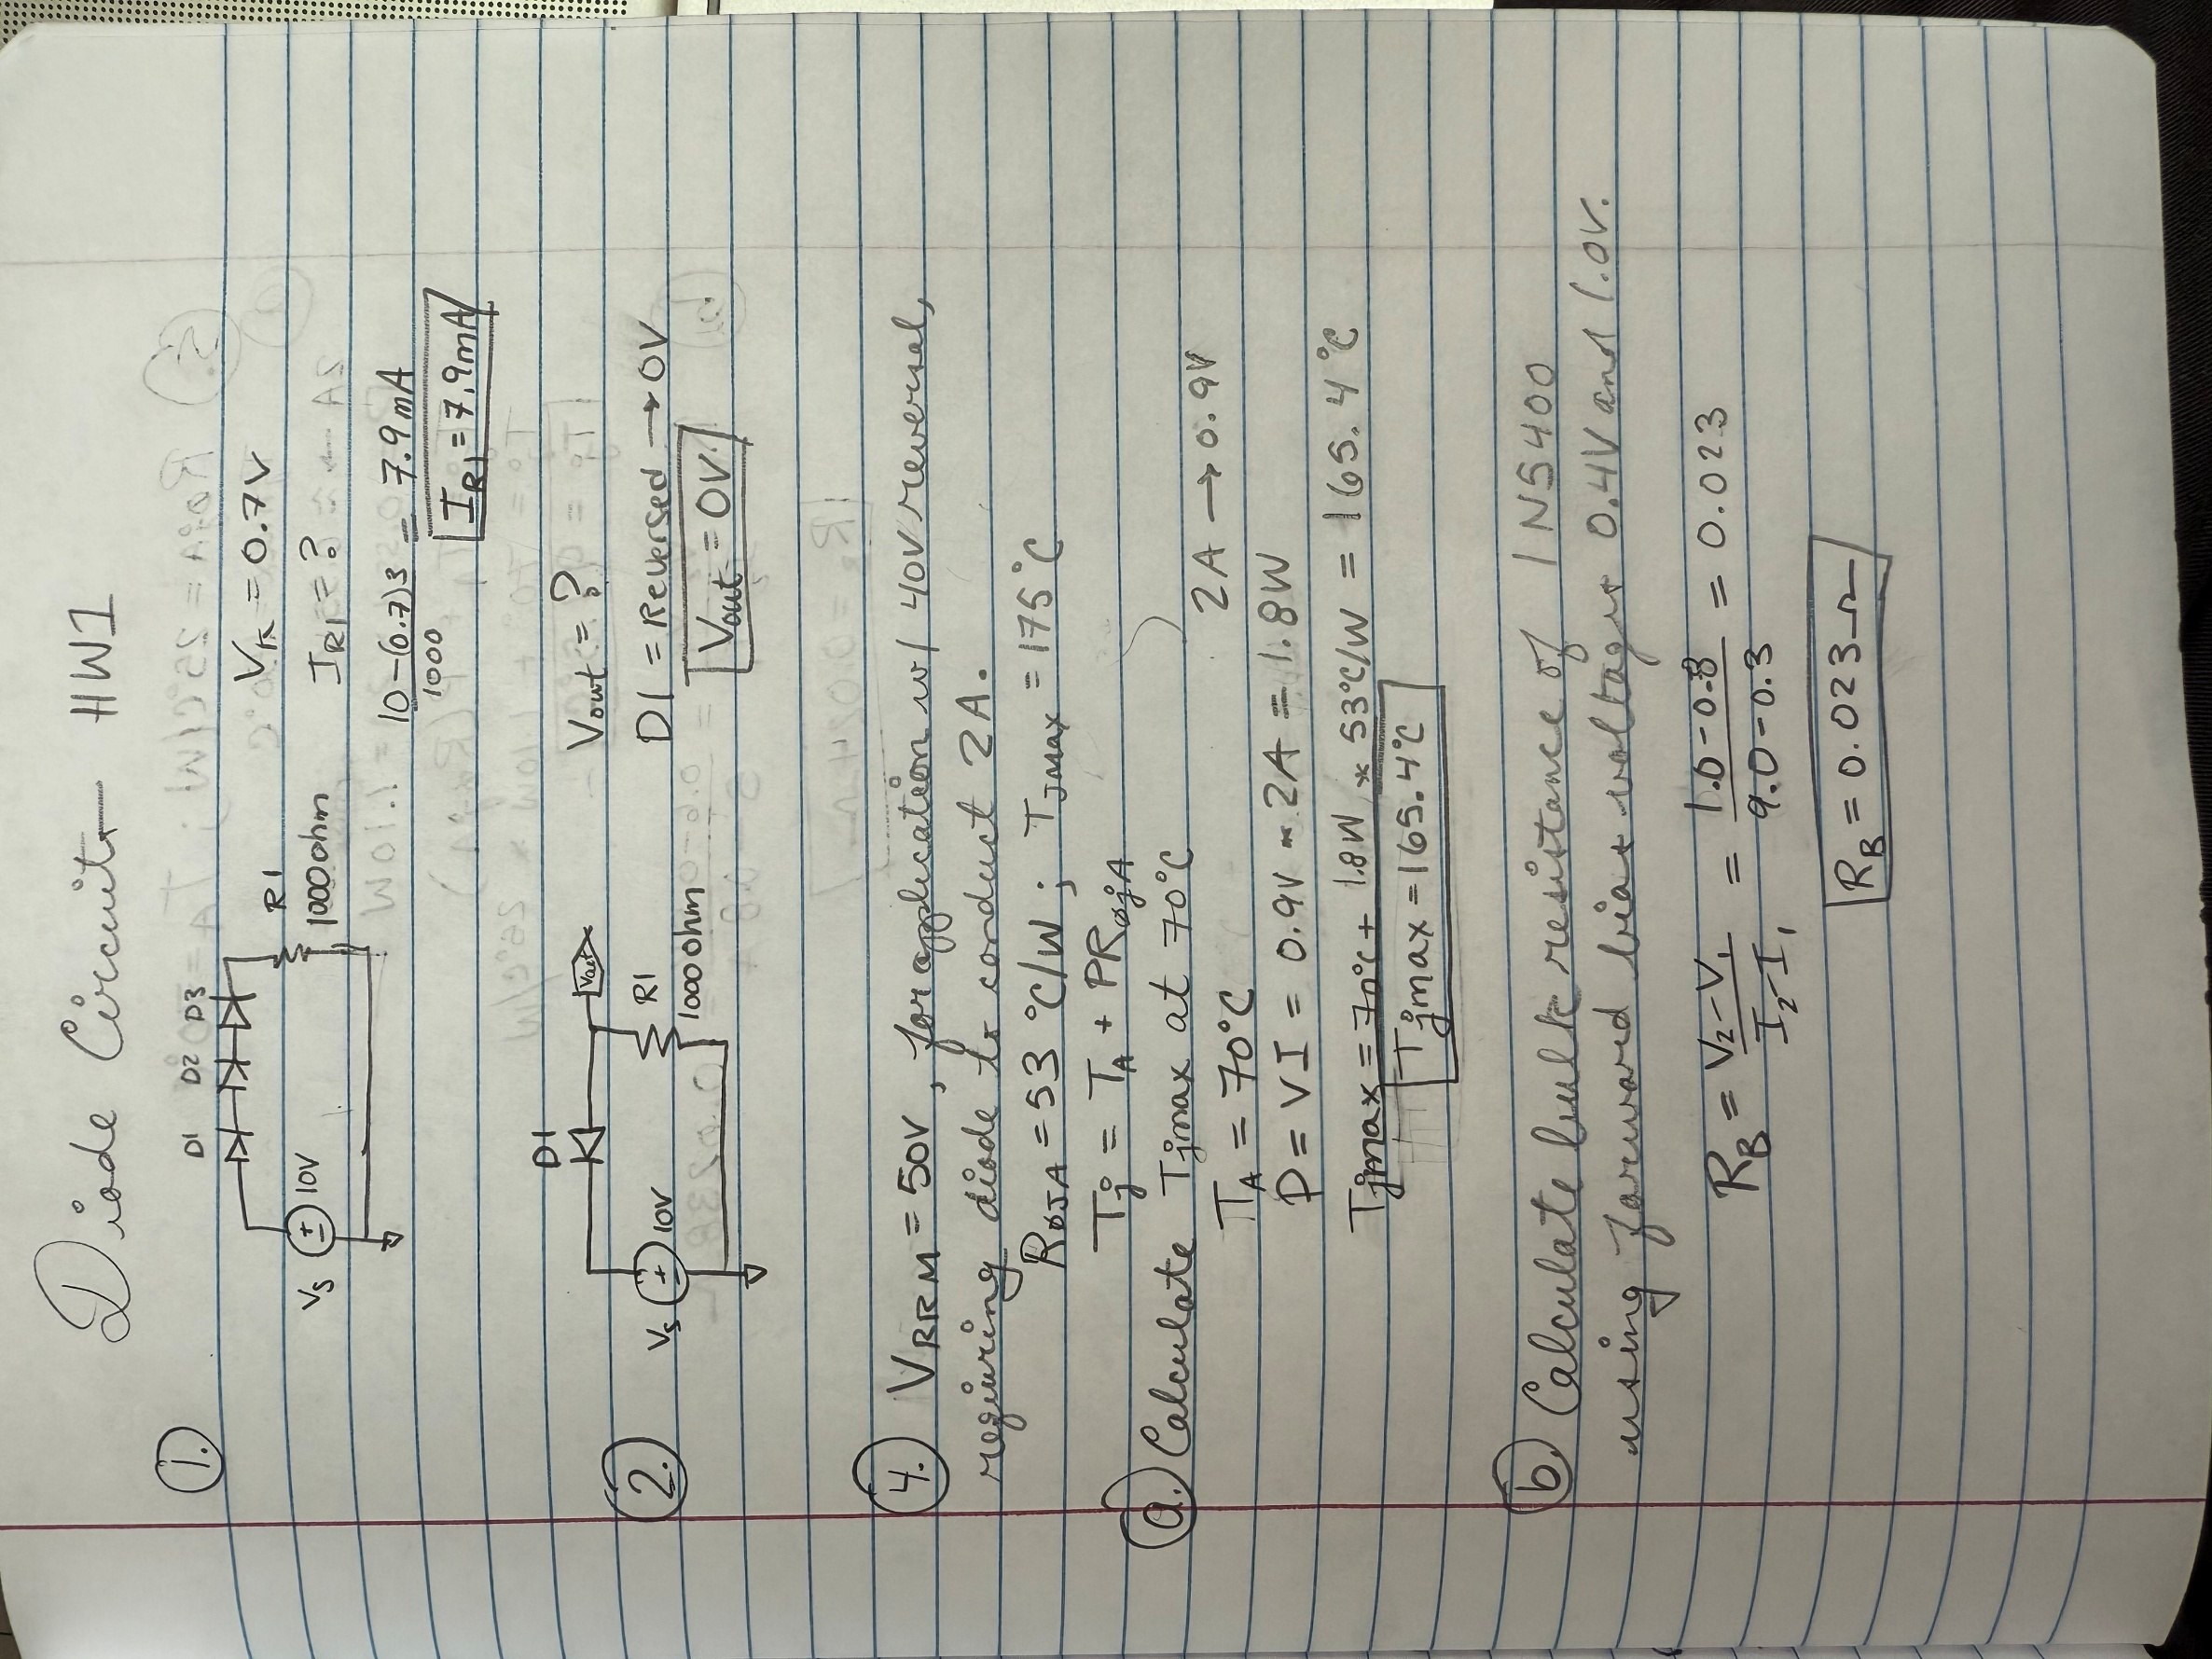 Diode Circuit HW1
1.
D1 D2 D3
R1
1000ohm
Vs 10V
VK = 0.7V
IR1 = ?
10-(0.7)3 / 1000 = 7.9mA
IR1 = 7.9mA
2.
D1
Vout
R1
1000ohm
Vs 10V
Vout = ?
D1 = Reversed → 0V
Vout = 0V
4. VRRM = 50V, for application w/ 40V reversal,
requiring diode to conduct 2A.
RθJA = 53 °C/W; TJMAX = 175°C
Tj = TA + PRθjA
a. Calculate Tjmax at 70°C
TA = 70°C
2A → 0.9V
P = VI = 0.9V * 2A = 1.8W
Tjmax = 70°C + 1.8W * 53°C/W = 165.4°C
Tjmax = 165.4°C
b. Calculate bulk resistance of 1N5400
using forward bias voltages 0.4V and 1.0V.
RB = V2-V1 / I2-I1 = 1.0-0.8 / 9.0-0.3 = 0.023
RB = 0.023Ω